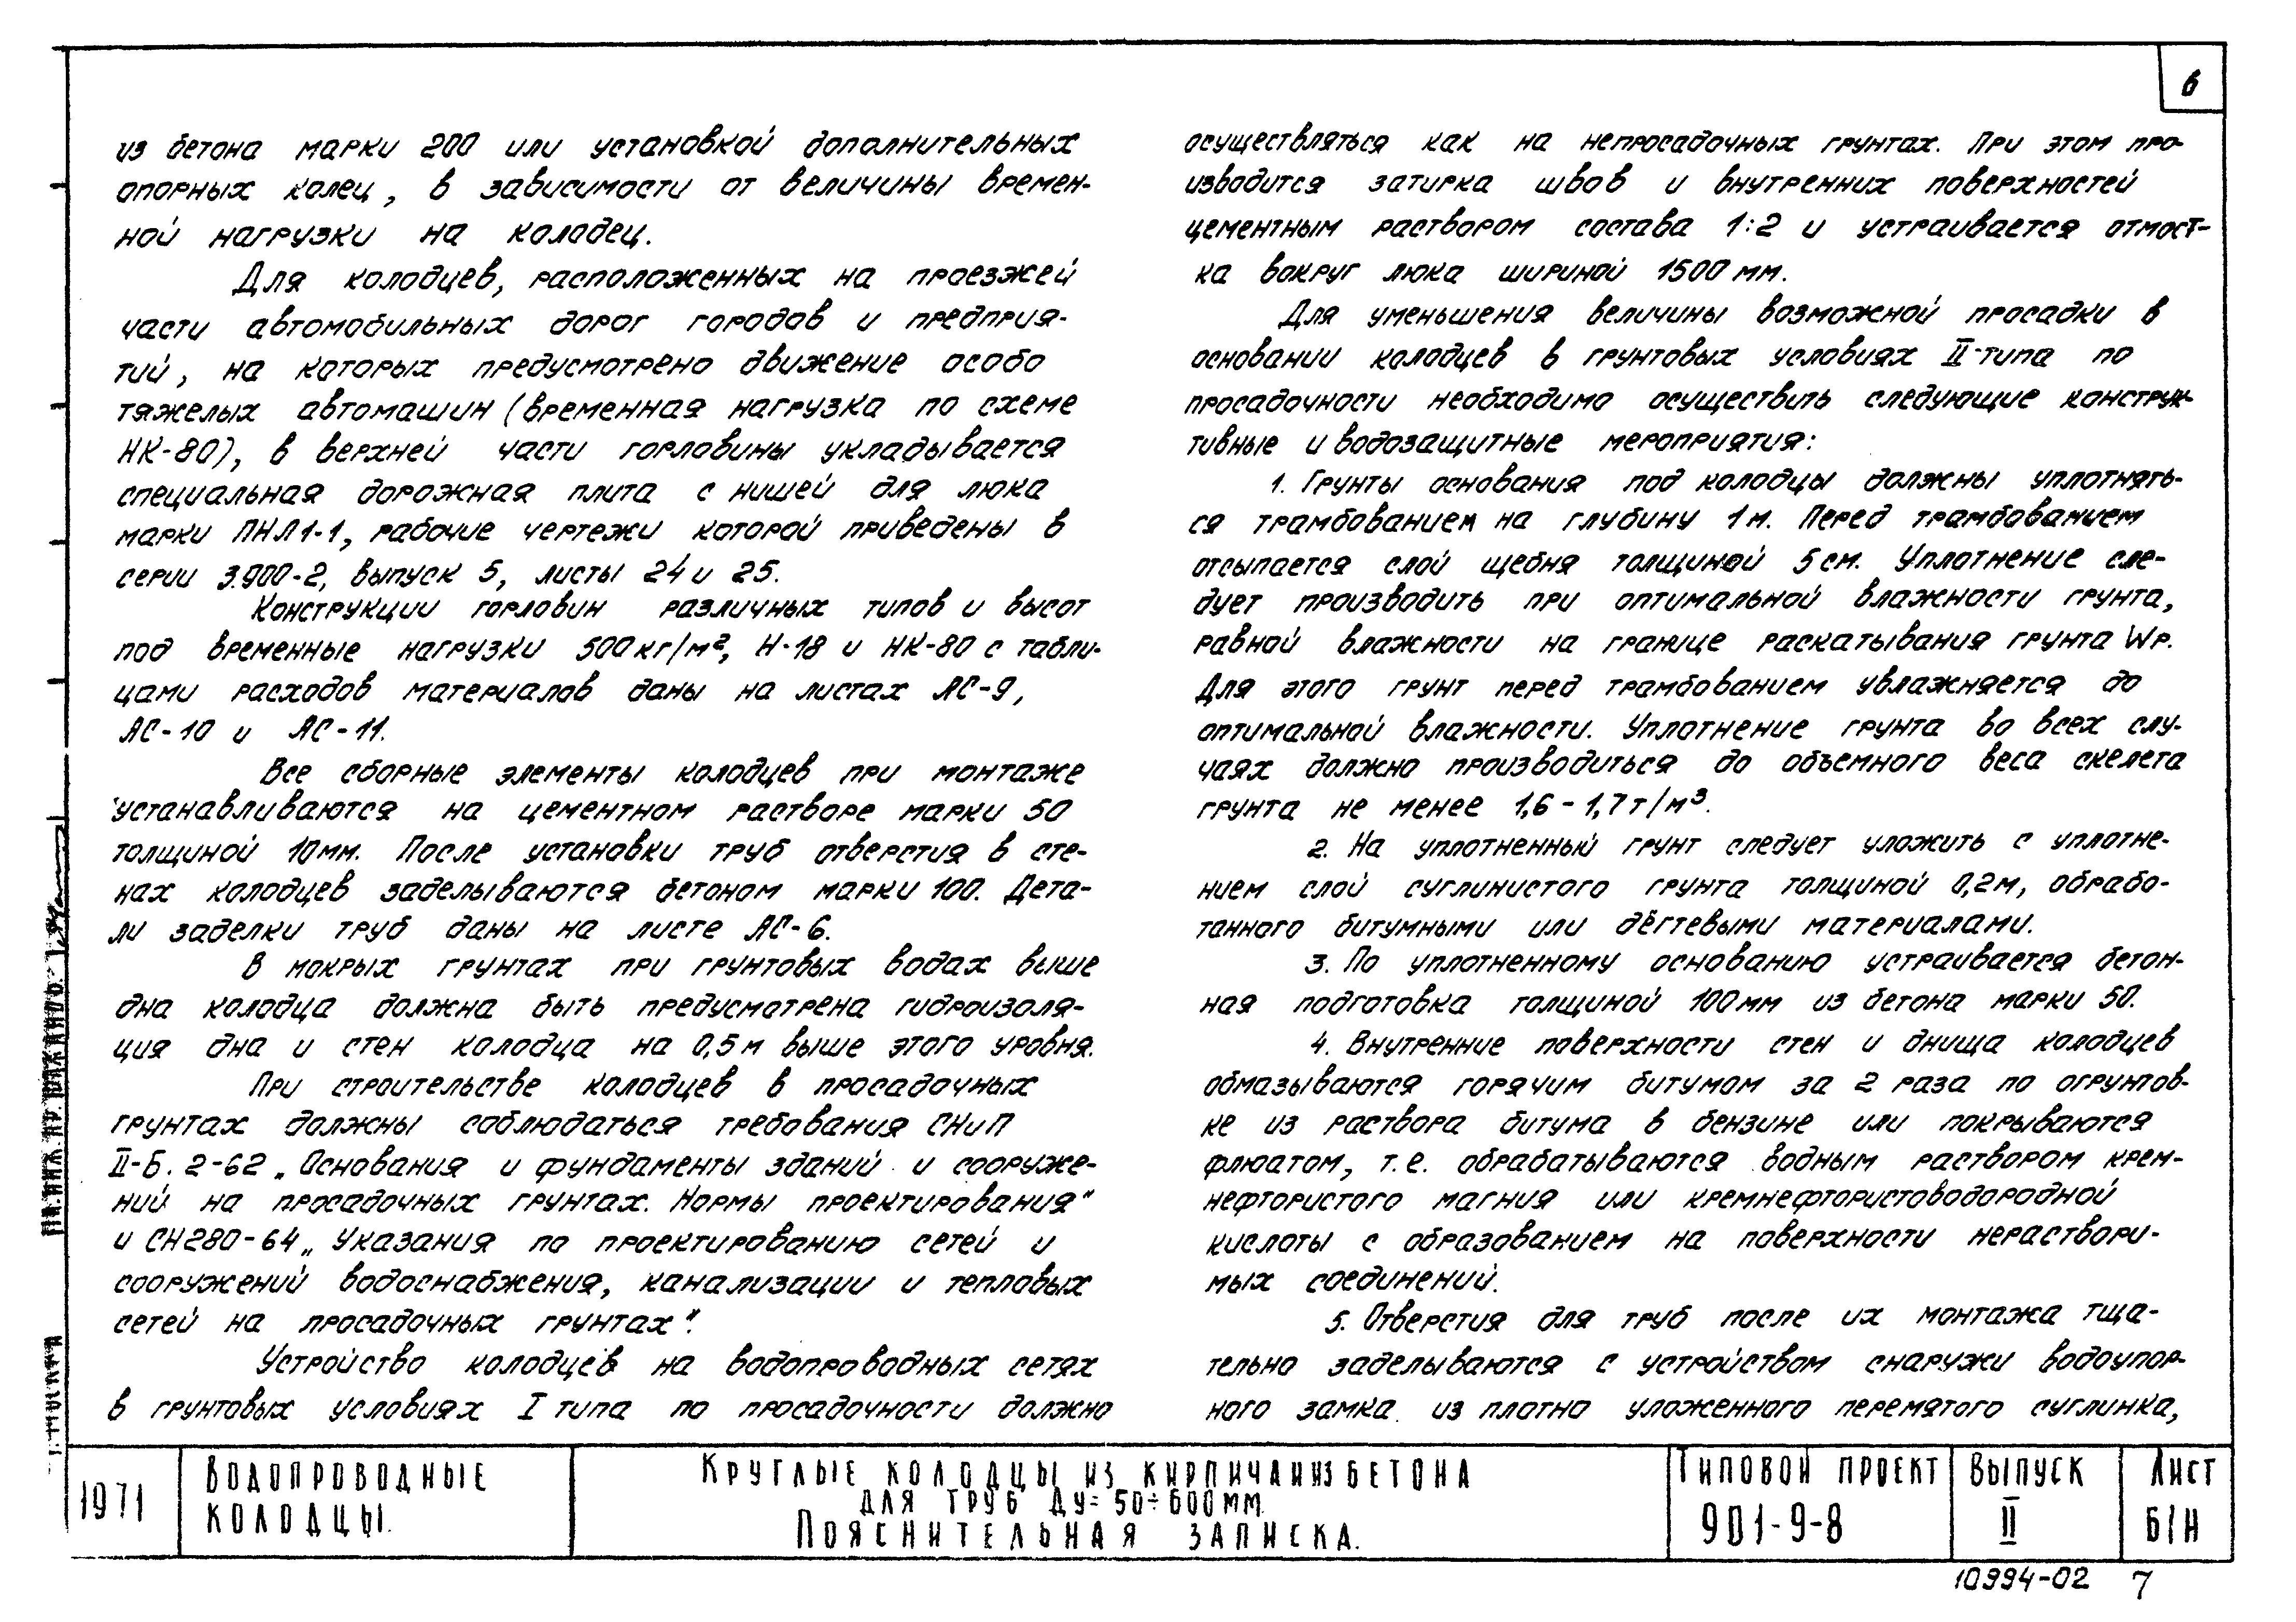 6
из бетона марки 200 или установкой дополнительных
опорных колец, в зависимости от величины времен-
ной нагрузки на колодец.
Для колодцев, расположенных на проезжей
части автомобильных дорог городов и предприя-
тий, на которых предусмотрено движение особо
тяжелых автомашин (временная нагрузка по схеме
НК-80), в верхней части горловины укладывается
специальная дорожная плита с нишей для люка
марки ПНЛ1-1, рабочие чертежи которой приведены в
серии 3.900-2, выпуск 5, листы 24 и 25.
Конструкции горловин различных типов и высот
под временные нагрузки 500 кг/м², Н-18 и НК-80 с табли-
цами расходов материалов даны на листах АС-9,
АС-10 и АС-11.
Все сборные элементы колодцев при монтаже
устанавливаются на цементном растворе марки 50
толщиной 10мм. После установки труб отверстия в сте-
нах колодцев заделываются бетоном марки 100. Дета-
ли заделки труб даны на листе АС-6.
В мокрых грунтах при грунтовых водах выше
дна колодца должна быть предусмотрена гидроизоля-
ция дна и стен колодца на 0,5м выше этого уровня.
При строительстве колодцев в просадочных
грунтах должны соблюдаться требования СНиП
II-Б. 2-62 „Основания и фундаменты зданий и сооруже-
ний на просадочных грунтах. Нормы проектирования"
и СН280-64 „Указания по проектированию сетей и
сооружений водоснабжения, канализации и тепловых
сетей на просадочных грунтах".
Устройство колодцев на водопроводных сетях
в грунтовых условиях I типа по просадочности должно
осуществляться как на непросадочных грунтах. При этом про-
изводится затирка швов и внутренних поверхностей
цементным раствором состава 1:2 и устраивается отмост-
ка вокруг люка шириной 1500 мм.
Для уменьшения величины возможной просадки в
основании колодцев в грунтовых условиях II типа по
просадочности необходимо осуществить следующие конструк-
тивные и водозащитные мероприятия:
1. Грунты основания под колодцы должны уплотнять-
ся трамбованием на глубину 1м. Перед трамбованием
отсыпается слой щебня толщиной 5 см. Уплотнение сле-
дует производить при оптимальной влажности грунта,
равной влажности на границе раскатывания грунта Wр.
Для этого грунт перед трамбованием увлажняется до
оптимальной влажности. Уплотнение грунта во всех слу-
чаях должно производиться до объемного веса скелета
грунта не менее 1,6-1,7т/м³.
2. На уплотненный грунт следует уложить с уплотне-
нием слой суглинистого грунта толщиной 0,2м, обрабо-
танного битумными или дёгтевыми материалами.
3. По уплотненному основанию устраивается бетон-
ная подготовка толщиной 100мм из бетона марки 50.
4. Внутренние поверхности стен и днища колодцев
обмазываются горячим битумом за 2 раза по огрунтов-
ке из раствора битума в бензине или покрываются
флюатом, т.е. обрабатываются водным раствором крем-
нефтористого магния или кремнефтористоводородной
кислоты с образованием на поверхности нераствори-
мых соединений.
5. Отверстия для труб после их монтажа тща-
тельно заделываются с устройством снаружи водоупор-
ного замка из плотно уложенного перемятого суглинка,
1971
Водопроводные
колодцы.
Круглые колодцы из кирпича и из бетона
для труб Ду=50÷600мм.
Пояснительная записка.
Типовой проект
901-9-8
Выпуск
II
Лист
Б/Н
10994-02 7